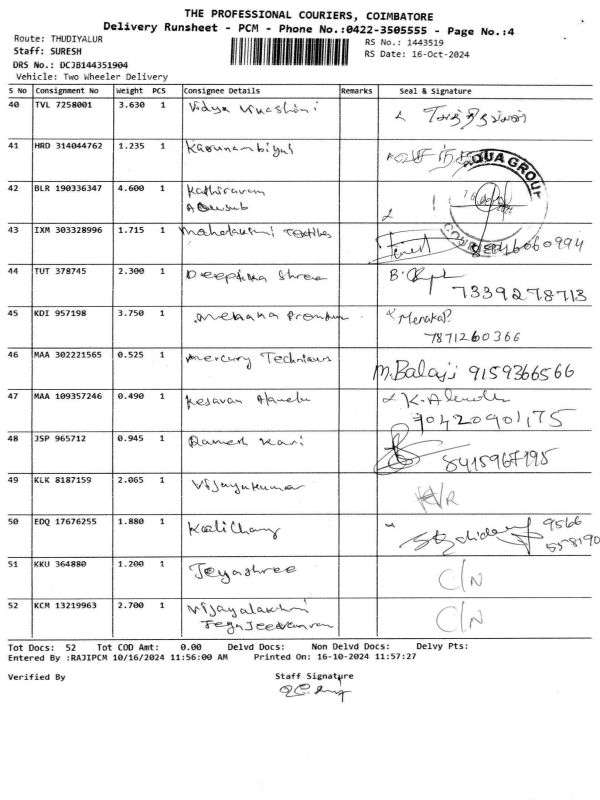 THE PROFESSIONAL COURIERS, COIMBATORE
Delivery Runsheet - PCM - Phone No.:0422-3505555 - Page No.:4
Route: THUDIYALUR
RS No.: 1443519
Staff: SURESH
RS Date: 16-Oct-2024
DRS No.: DCJB144351904
Vehicle: Two Wheeler Delivery
S No Consignment No Weight PCS Consignee Details Remarks Seal & Signature
40 TVL 7258001 3.630 1 Vidya
41 HRD 314044762 1.235 1
42 BLR 190336347 4.600 1 Kathiravan
AQUA GROUP
43 IXM 303328996 1.715 1 Mahalakshmi Textiles
44 TUT 378745 2.300 1 Deeptika Shree
7339278713
45 KDI 957198 3.750 1 Menaka
7871260366
46 MAA 302221565 0.525 1 Mercury
M.Balaji 9159366566
47 MAA 109357246 0.490 1 Kesavan
48 JSP 965712 0.945 1 Ramesh Kani
8415967195
49 KLK 8187159 2.065 1 Vijayakumar
50 EDQ 17676255 1.880 1 9566
558190
51 KKU 364880 1.200 1 Jeyashree C/N
52 KCM 13219963 2.700 1 Vijayalakshmi C/N
Tot Docs: 52 Tot COD Amt: 0.00 Delvd Docs: Non Delvd Docs: Delvy Pts:
Entered By :RAJIPCM 10/16/2024 11:56:00 AM Printed On: 16-10-2024 11:57:27
Verified By Staff Signature